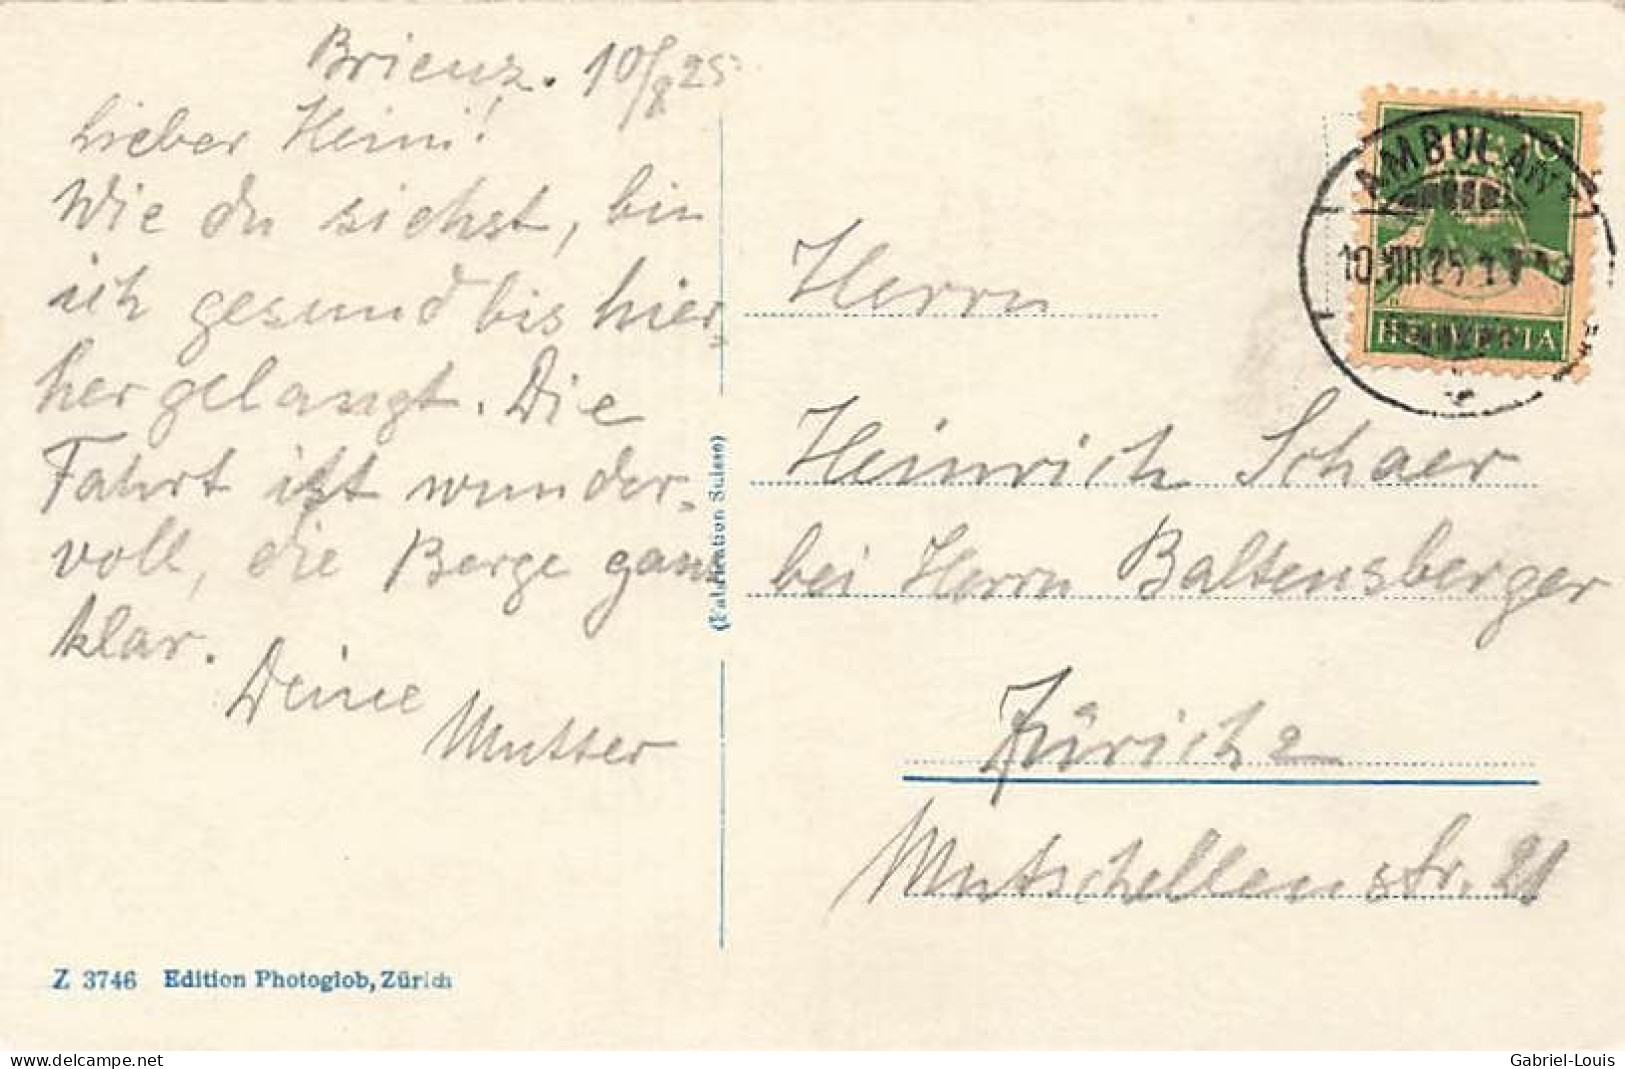 Brienz. 10/8 25
Lieber Heini!
Wie du siehst, bin
ich gesund bis hier-
her gelangt. Die
Fahrt ist wunder-
voll, die Berge ganz
klar.
Deine
Mutter
(Fabrication Suisse)
Z 3746 Edition Photoglob, Zürich
AMBULANT
10.VIII 25
HELVETIA
10
Herrn
Heinrich Schaer
bei Herrn Baltensberger
Zürich 2
Mutschellenstr. 21
delcampe.net
Gabriel-Louis